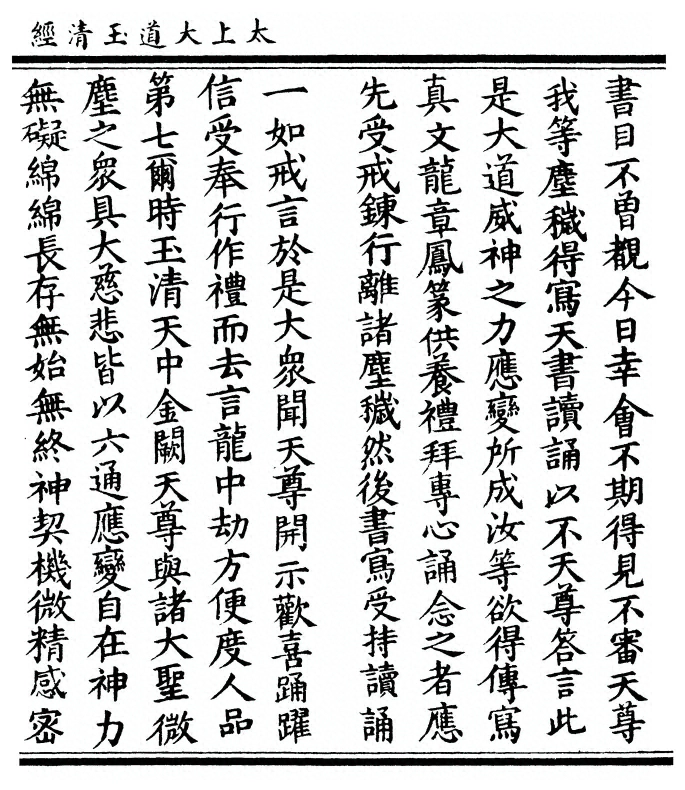 太上大道玉清經
書目不曽覩今日幸會不期得見不審天尊
我等塵穢得寫天書讀誦以不天尊答言此
是大道威神之力應變所成汝等欲得傳寫
真文龍章鳳篆供養禮拜專心誦念之者應
先受戒鍊行離諸塵穢然後書寫受持讀誦
一如戒言於是大衆聞天尊開示歡喜踊躍
信受奉行作禮而去言龍中劫方便度人品
第七爾時玉清天中金闕天尊與諸大聖微
塵之衆具大慈悲皆以六通應變自在神力
無礙綿綿長存無始無終神契機微精感密